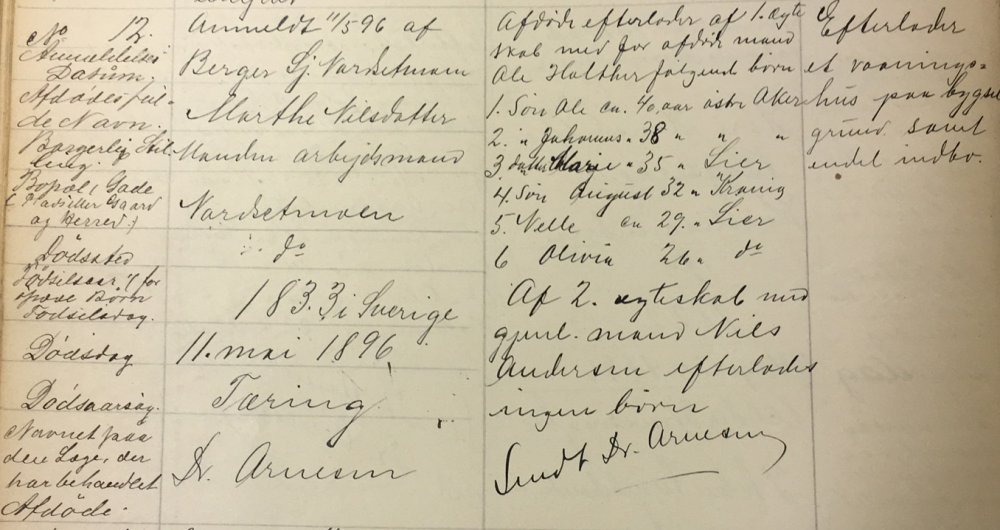 No 12.
Anmeldelses
Datum.
Afdødes ful-
de Navn.
Borgerlig Stil-
ling.
Bopæl (Gade
Pladseller Gaard
og Herred.)
Dødssted
Fødselsaar, f for
spæde Børn
Fødselsdag.
Dødsdag
Dødsaarsag.
Navnet paa
den Læge, der
har behandlet
Afdøde.
Anmeldt 11/5 96 af
Berger Sj. Nordsetmoen
Marthe Nilsdatter
Manden arbejdsmand
Nordsetmoen
do
1833 i Sverige
11. mai 1896
Tæring
Dr. Arnesen
Afdøde efterlader af 1. ægte
skab med før afdøde mand
Ole Halther følgende børn
1. Søn Ole ca. 40 aar østre Aker
2. " Johannes " 38 " " "
3. datter Marie " 35 " Lier
4. Søn August 32 "
5. Nelle ca 29 " Lier
6 Olivia 26 " do
Af 2. egteskab med
gjenl. mand Nils
Andersen efterlades
ingen børn
Sendt Dr. Arnesen
Efterlader
et vaanings-
hus paa bygsel
grund samt
endel indbo.